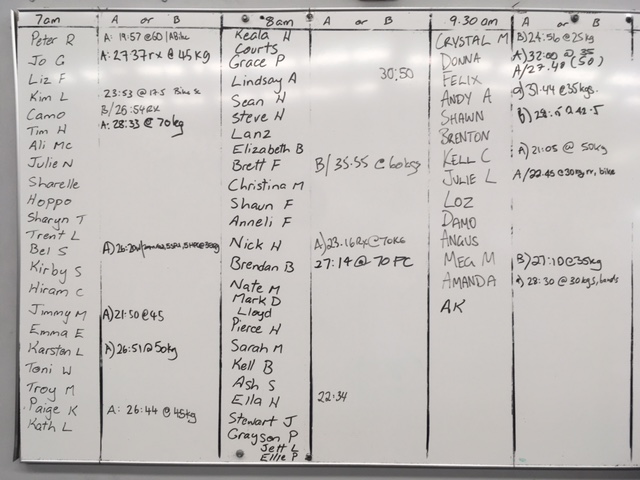 7am A or B 8am A or B 9:30am A or B
Peter R A: 19:57 @60
Jo G A: 27:37rx @ 45kg
Liz F
Kim L 23:53 @ 17.5 Bike
Camo B/ 26:54RX
Tim H A: 28:33 @ 70kg
Ali Mc
Julie N
Sharelle
Hoppo
Sharyn T
Trent L
Bel S
Kirby S
Hiram C
Jimmy M A) 21:50 @45
Emma E
Karsten L A) 26:51 @ 50kg
Toni W
Troy M
Paige K A: 26:44 @ 45kg
Kath L
Keala H
Courts
Grace P
Lindsay A 30:50
Sean H
Steve H
Lanz
Elizabeth B
Brett F B/ 35:55 @ 60kgs
Christina M
Shaun F
Anneli F
Nick H A) 23.16Rx @ 70KG
Brendan B 27:14 @ 70 PC
Nate M
Mark D
Lloyd
Pierce H
Sarah M
Kell B
Ash S
Ella H 22:34
Stewart J
Grayson P
Jett L
Ellie P
CRYSTAL M B) 24:56 @ 25kg
DONNA A) 32:00 @ 35
FELIX A/ 27.40 (50)
ANDY A 31.44 @ 35kgs.
SHAWN
BRENTON
KELL C A) 21:05 @ 50kg
JULIE L A/ 22.45 @ 30kg rr, bike
LOZ
DAMO
ANGUS
MEG M B) 27:10 @ 35kg
AMANDA 28:30 @ 30kgs, bands
AK